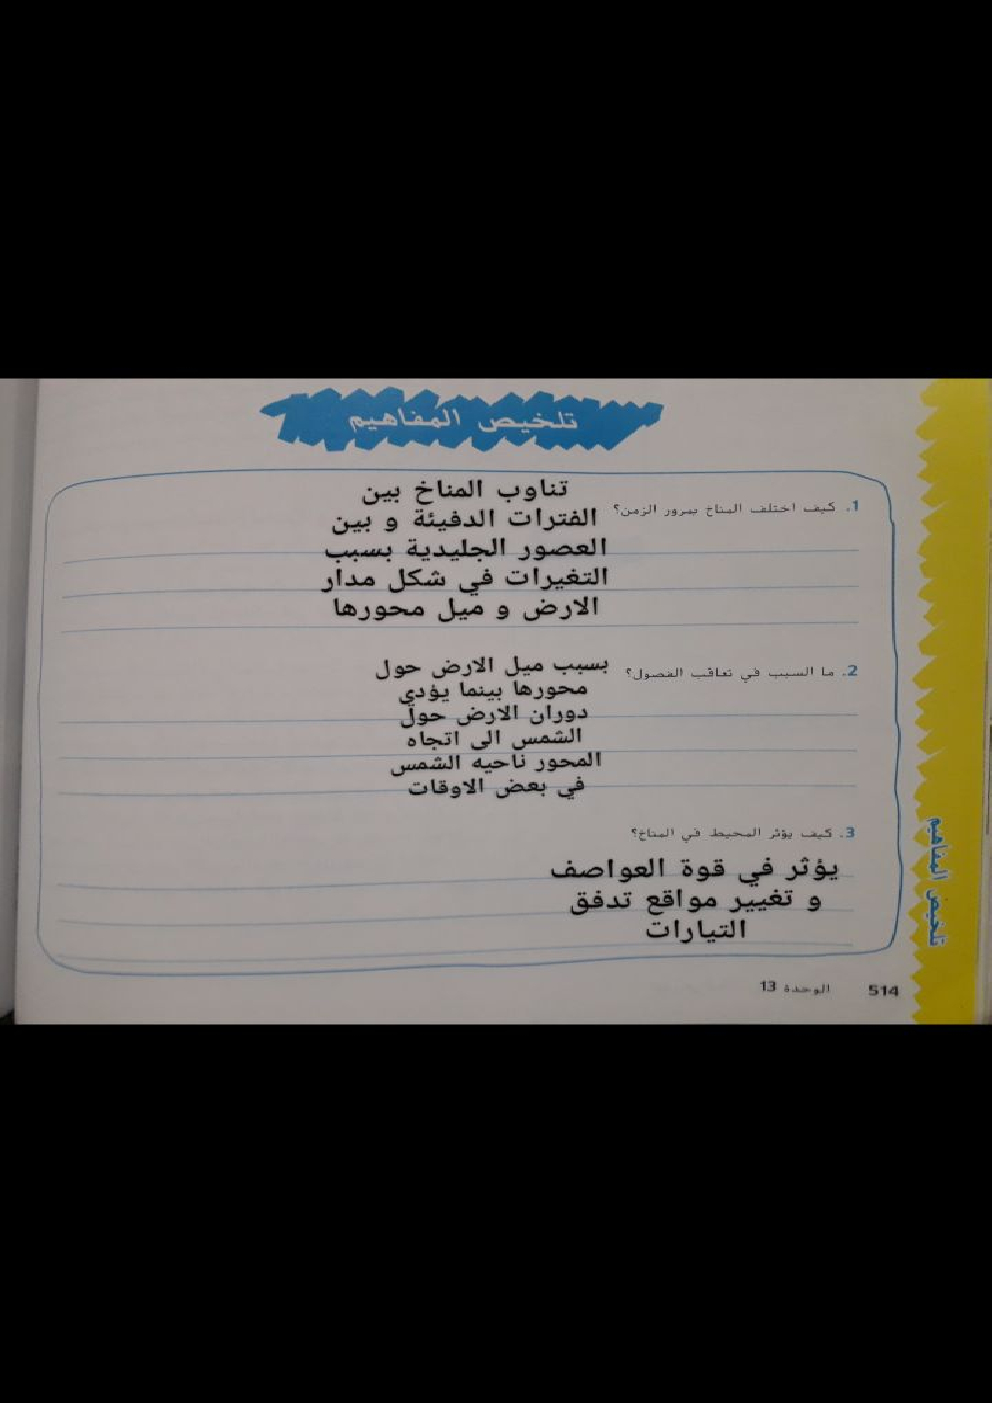 تلخيص المفاهيم
1. كيف اختلف المناخ بمرور الزمن؟
تناوب المناخ بين
الفترات الدفيئة و بين
العصور الجليدية بسبب
التغيرات في شكل مدار
الارض و ميل محورها
2. ما السبب في تعاقب الفصول؟
بسبب ميل الارض حول
محورها بينما يؤدي
دوران الارض حول
الشمس الى اتجاه
المحور ناحيه الشمس
في بعض الاوقات
3. كيف يؤثر المحيط في المناخ؟
يؤثر في قوة العواصف
و تغيير مواقع تدفق
التيارات
تلخيص المفاهيم
514 الوحدة 13